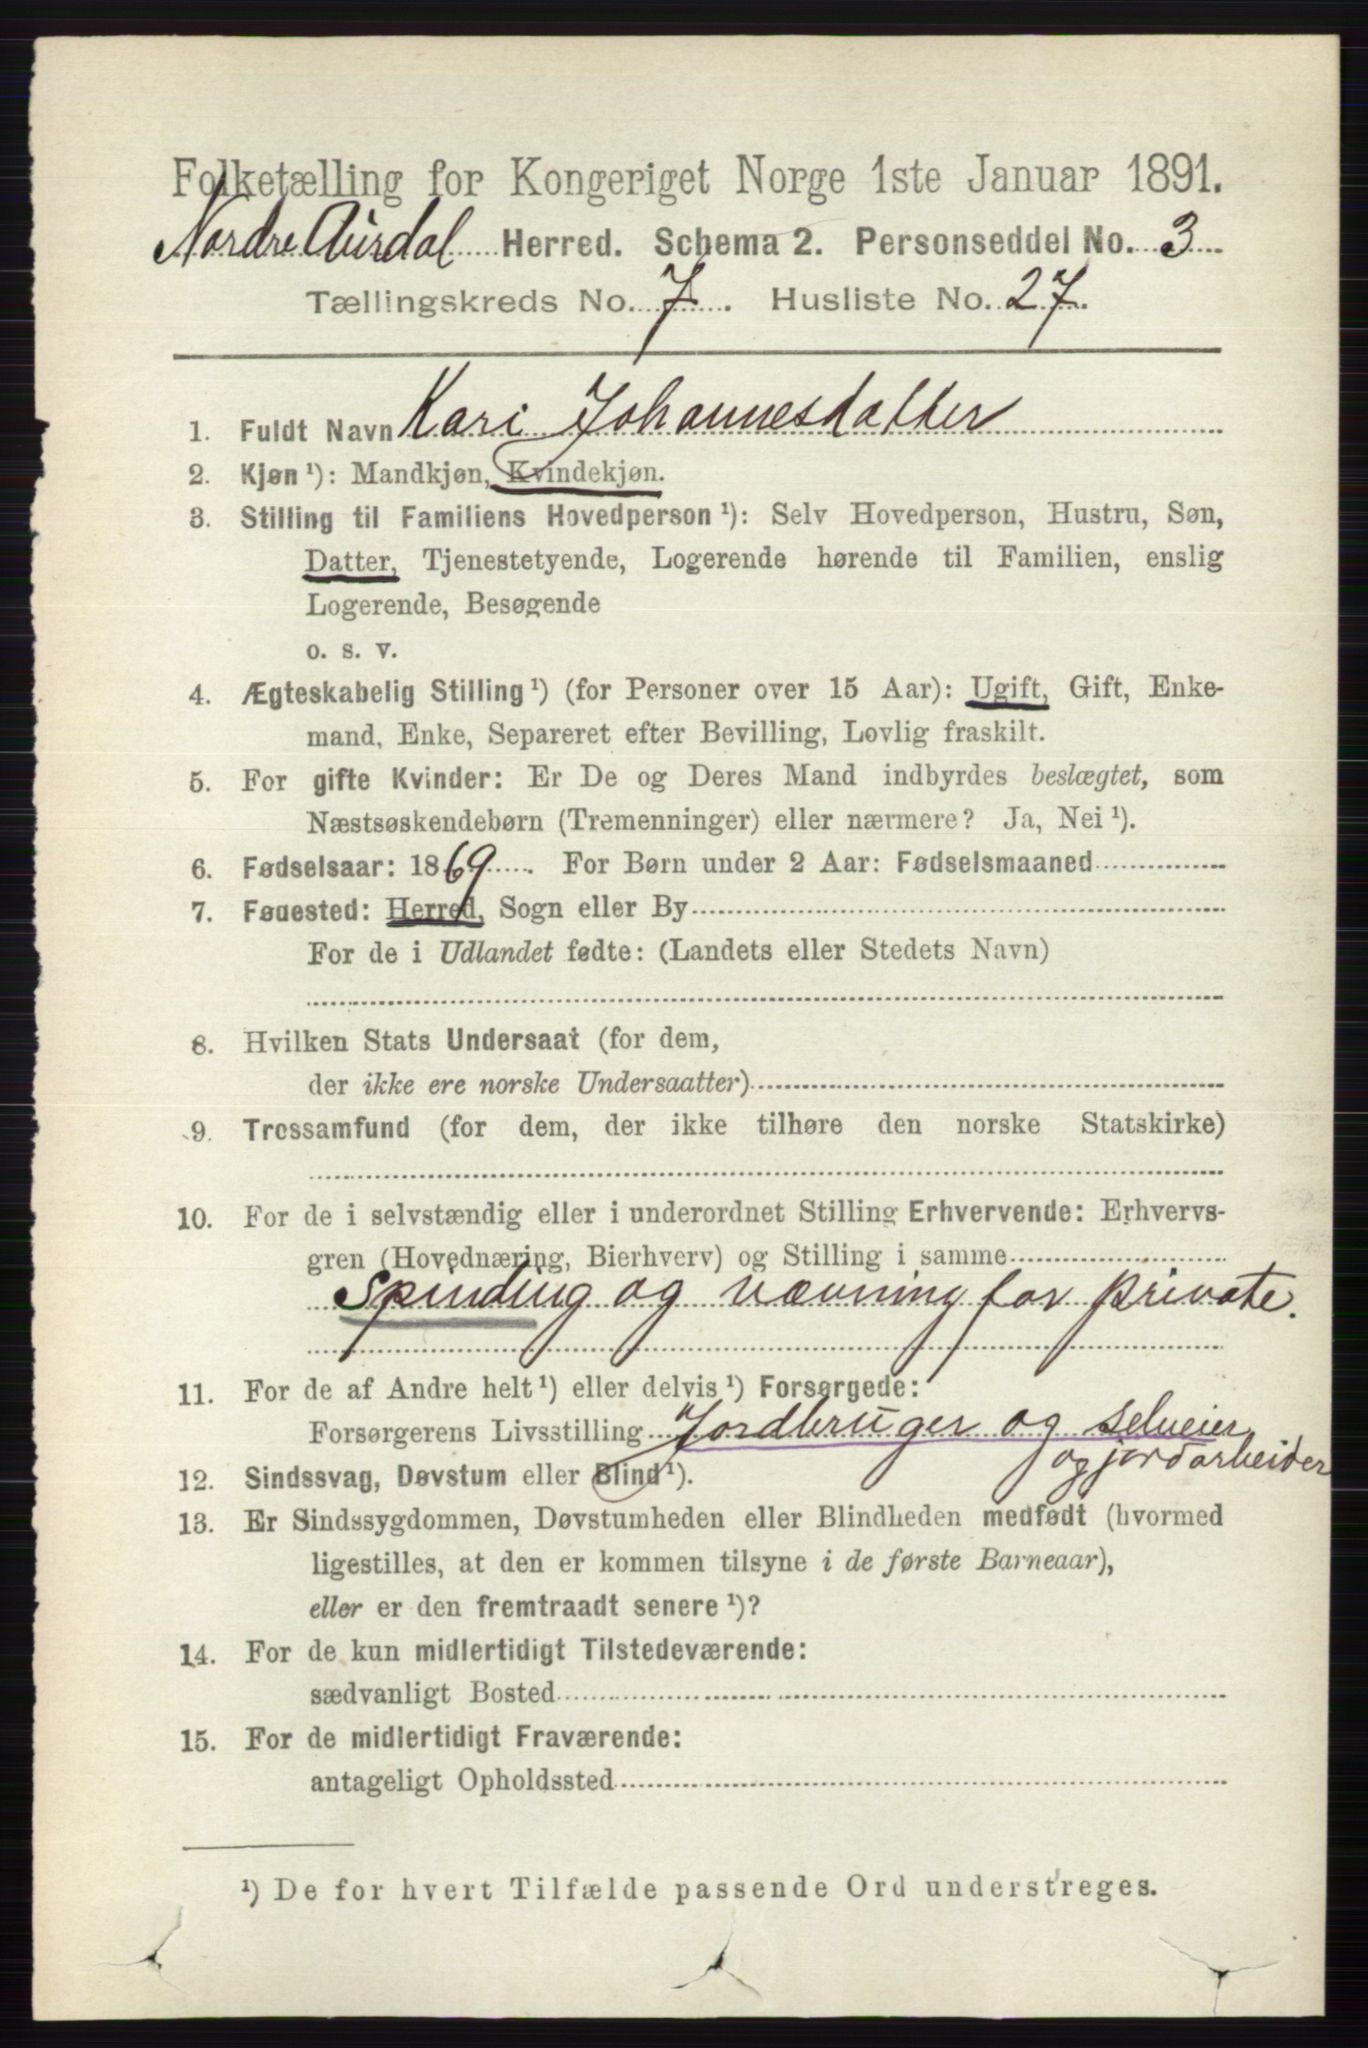 Folketælling for Kongeriget Norge 1ste Januar 1891.
Nordre Aurdal Herred. Schema 2. Personseddel No. 3
Tællingskreds No. 7. Husliste No. 27
1. Fuldt Navn Kari Johannesdatter
2. Kjøn ¹): Mandkjøn, Kvindekjøn.
3. Stilling til Familiens Hovedperson ¹): Selv Hovedperson, Hustru, Søn,
Datter, Tjenestetyende, Logerende hørende til Familien, enslig
Logerende, Besøgende
o. s. v.
4. Ægteskabelig Stilling ¹) (for Personer over 15 Aar): Ugift, Gift, Enke-
mand, Enke, Separeret efter Bevilling, Lovlig fraskilt.
5. For gifte Kvinder: Er De og Deres Mand indbyrdes beslægtet, som
Næstsøskendebørn (Tremenninger) eller nærmere? Ja, Nei ¹).
6. Fødselsaar: 1869. For Børn under 2 Aar: Fødselsmaaned
7. Fødested: Herred, Sogn eller By
For de i Udlandet fødte: (Landets eller Stedets Navn)
8. Hvilken Stats Undersaat (for dem,
der ikke ere norske Undersaatter)
9. Trossamfund (for dem, der ikke tilhøre den norske Statskirke)
10. For de i selvstændig eller i underordnet Stilling Erhvervende: Erhvervs-
gren (Hovednæring, Bierhverv) og Stilling i samme
Spinding og vævning for private.
11. For de af Andre helt ¹) eller delvis ¹) Forsørgede:
Forsørgerens Livsstilling Jordbruger og selveier
og jordarbeider
12. Sindssvag, Døvstum eller Blind ¹).
13. Er Sindssygdommen, Døvstumheden eller Blindheden medfødt (hvormed
ligestilles, at den er kommen tilsyne i de første Barneaar),
eller er den fremtraadt senere ¹)?
14. For de kun midlertidigt Tilstedeværende:
sædvanligt Bosted
15. For de midlertidigt Fraværende:
antageligt Opholdssted
¹) De for hvert Tilfælde passende Ord understreges.